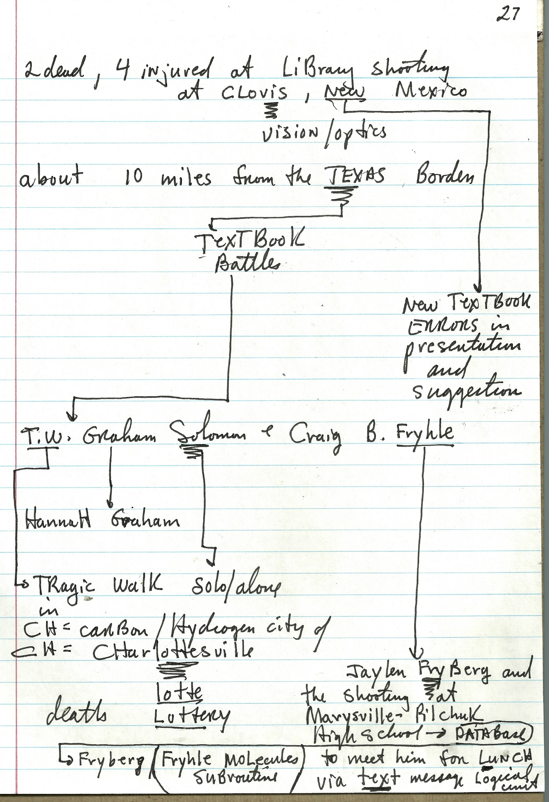 27
2 dead, 4 injured at LiBrary shooting
at CLOVIS, New Mexico
vision/optics
about 10 miles from the TEXAS Border
TexTBook
Battles
New TexTBook
ERRORS in
presentation
and
suggestion
T.W. Graham Solomon & Craig B. Fryhle
HannaH Graham
TRagic walk solo/alone
in
CH = carBon/Hydrogen city of
CH = CHarlottesville
lotte
deaths LOTTERY
Jaylen FryBerg and
the shooting at
Marysville-Pilchuk
High School → DATABASE
Fryberg (Fryhle Molecules
Subroutine)
to meet him for LUNCH
via text message Logical
unit